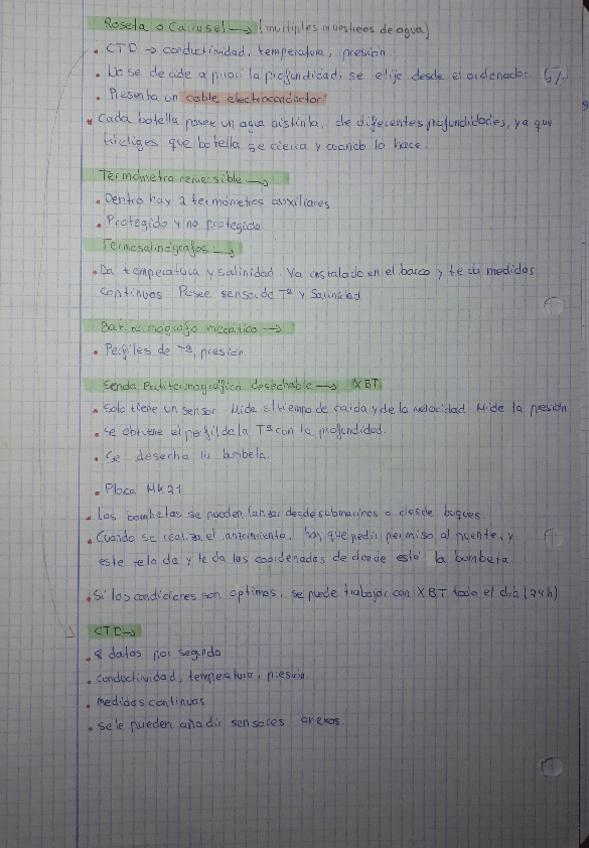 Roseta o Carrusel → (multiples muestreos de agua)
• CTD → conductividad, temperatura, presión
• No se decide a priori la profundidad, se elije desde el ordenador.
• Presenta un cable electroconductor.
• Cada botella posee un agua distinta, de diferentes profundidades, ya que
tu eliges que botella se cierra y cuando lo hace.
Termómetro reversible →
• Dentro hay 2 termómetros auxiliares
• Protegido y no protegido.
Termosalinógrafos →
• Da temperatura y salinidad. Va instalado en el barco y te da medidas
continuas. Posee sensor de Tª y Salinidad
Batitermógrafo mecánico →
• Perfiles de Tª, presión
Sonda Batitermográfica desechable → XBT
• Solo tiene un sensor. Mide el tiempo de caida y de la velocidad. Mide la presión
• Se obtiene el perfil de la Tª con la profundidad.
• Se desecha la bombeta.
• Placa Mk21
• Las bombetas se pueden lanzar desde submarinos o desde buques.
• Cuando se realiza el lanzamiento, hay que pedir permiso al puente, y
este te la da y te da las coordenadas de donde está la bombeta
• Si las condiciones son optimas, se puede trabajar con XBT todo el dia (24h)
CTD →
• 8 datos por segundo
• conductividad, temperatura, presión
• medidas continuas
• se le pueden añadir sensores anexos.